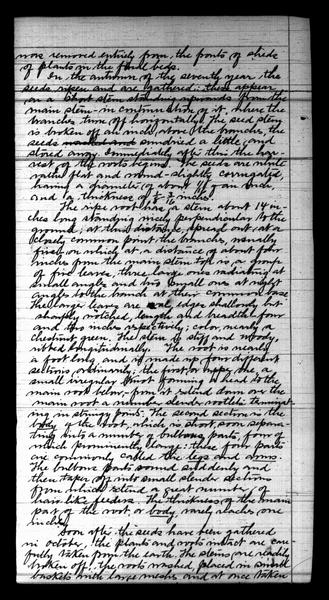 now removed entirely from the fronts of sheds
of plants in the final beds.
In the autumn of the seventh year, the
seeds ripen and are gathered; these appear
on a short stem standing upwards from the
main stem in continuation of it, where the
branches turn off horizontally. The seed stem
is broken off an inch above the branches, the
seeds sundried a little, and
stored away. Immediately after this, the har-
vest of the roots begins. The seeds are white
rather flat and round-slightly corrugated,
having a diameter of about of an inch,
and a thickness of inches.
The ripe root has a stem about 14 in-
ches long standing nicely perpendicular to the
ground; at this distance, spread out, at a
closely common point the branches, usually
five; on which, at a distance of about four
inches from the main stem top, is a group
of five leaves, three large ones radiating at
small angles and two small ones at right
angles to the branch at their common base
The large leaves are oval, edges shallowly but
sharply notched, length and breadth four
and two inches respectively; color, nearly a
chestnut green. The stem is stiff and woody,
ribbed longitudinally. The root is nearly
a foot long, and is made up four different
sections ordinarily; the first, or upper, one a
small irregular knot forming a head to the
main root below; from it extend down over the
main root a number slender rootlets terminat-
ing in stringy points. The second section is the
body of the root, which is short, soon separa-
ting into a number of bulbous parts, four of
which prominently large; these four parts
are commonly called the legs and arms.
The bulbous parts round suddenly and
then taper off into small slender sections
from which extend a great number of
hair-like feelers. The thickness of the main
part of the root, or body, rarely reaches one
inch.
Soon after the seeds have been gathered
in october, the plants and roots intact are care-
fully taken from the earth. The stems are readily
broken off; the roots washed, placed in small
baskets with large meshes and at once taken